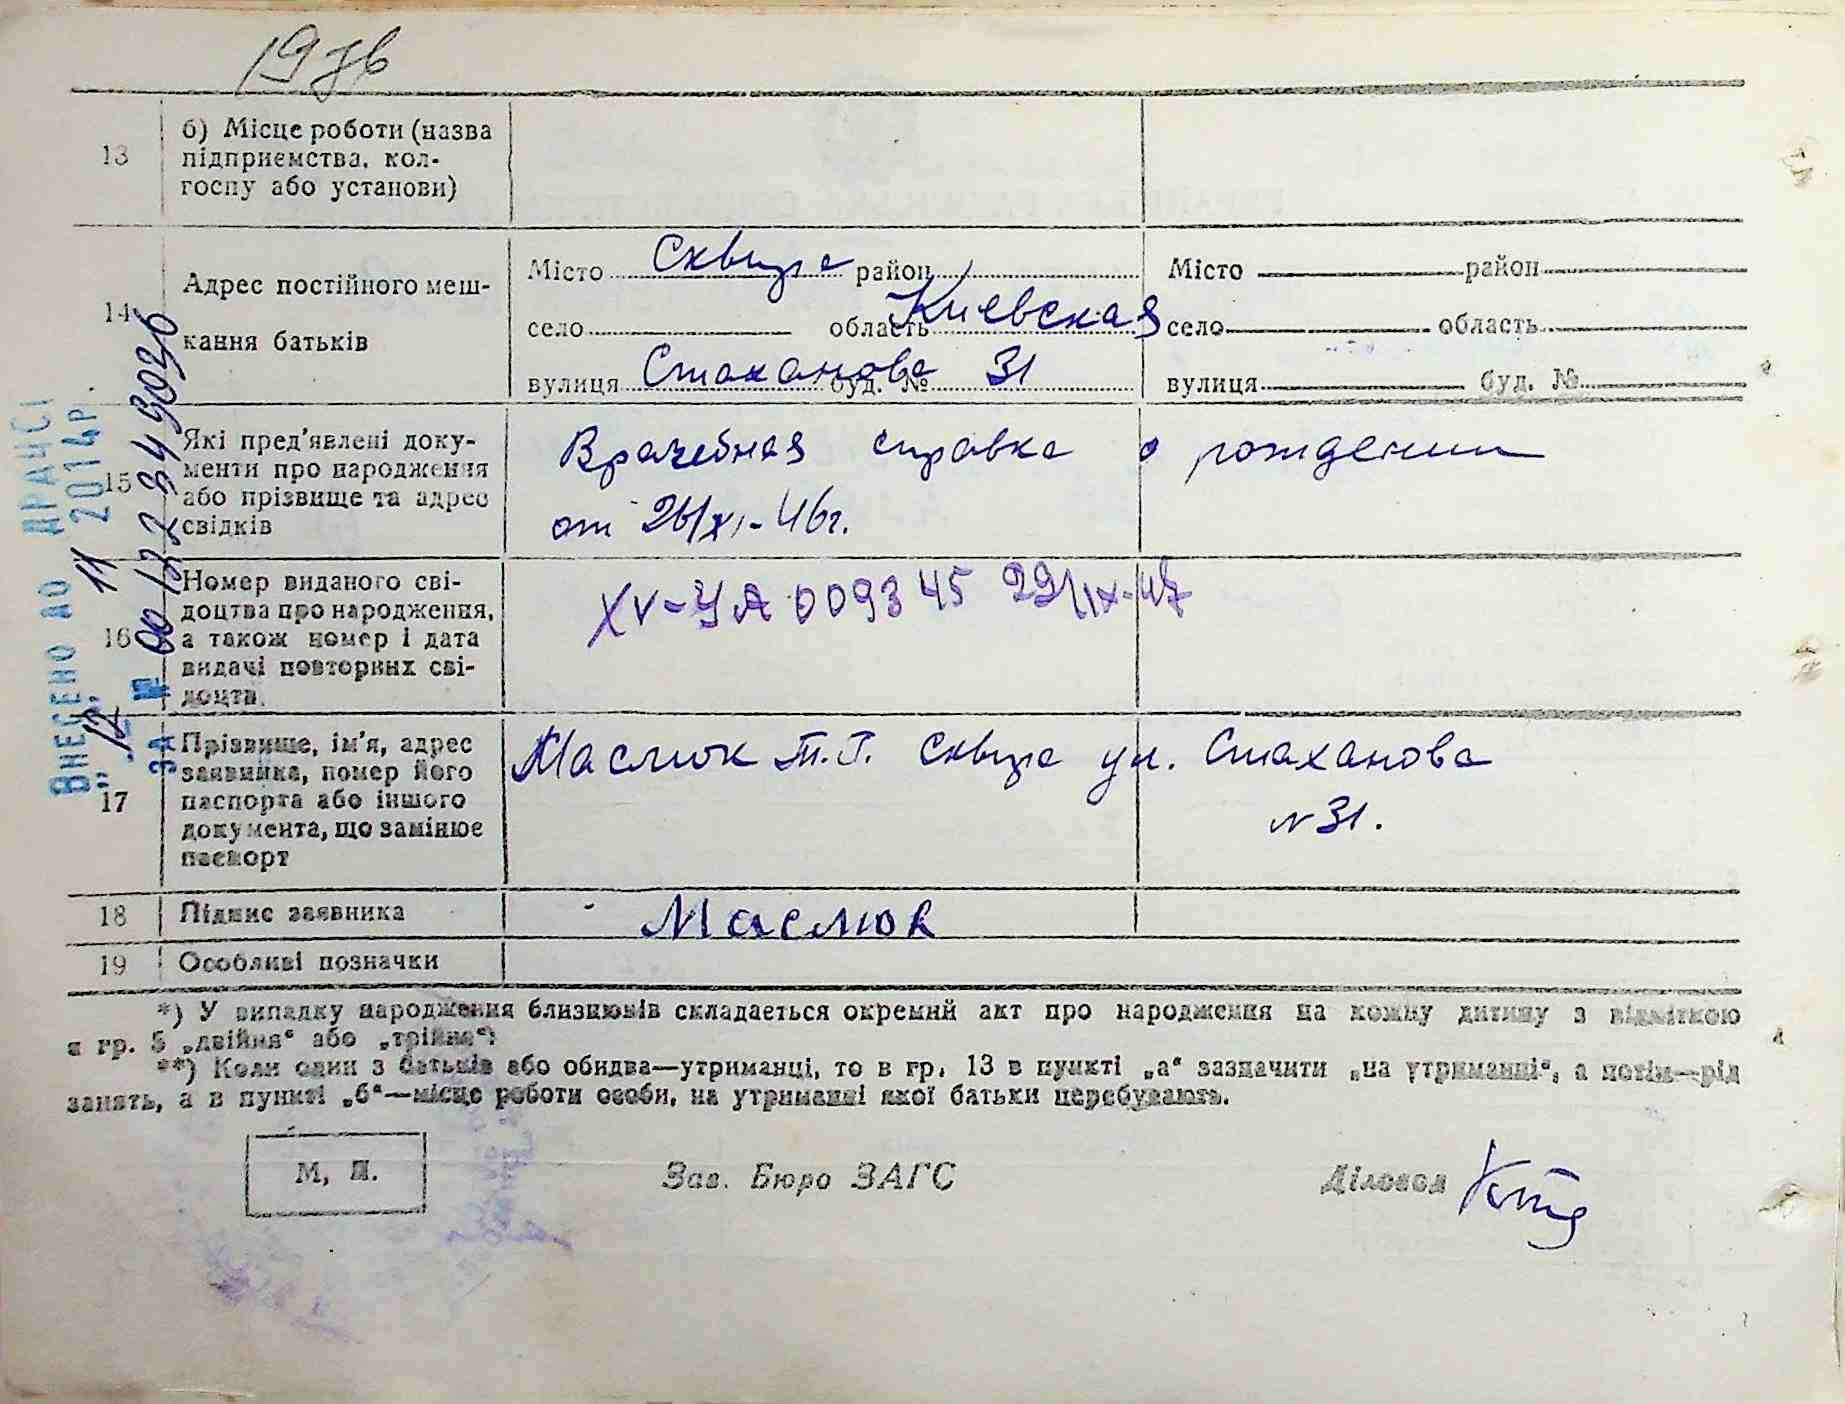 197в
13
б) Місце роботи (назва
підприємства, кол-
госпу або установи)
14
Адрес постійного меш-
кання батьків
Місто Сквира район
село область Киевская
вулиця Стаханова буд. № 31
Місто район
село область
вулиця буд. №
15
Які пред'явлені доку-
менти про народження
або прізвище та адрес
свідків
Врачебная справка о рождении
от 26/XI-46г.
16
Номер виданого сві-
доцтва про народження,
а також номер і дата
видачі повторних сві-
доцтв.
XV-УА 009345 29/IX-47
17
Прізвище, ім'я, адрес
заявника, номер його
паспорта або іншого
документа, що замінює
паспорт
Маслюк Т.Г. Сквира ул. Стаханова
№ 31.
18
Підпис заявника
Маслюк
19
Особливі позначки
*) У випадку народження близнюків складається окремий акт про народження на кожну дитину з відміткою
в гр. 5 „двійня“ або „трійня“.
**) Коли один з батьків або обидва—утриманці, то в гр. 13 в пункті „а“ зазначити „на утриманні“, а потім—рід
занять, а в пункті „б“—місце роботи особи, на утриманні якої батьки перебувають.
М. П.
Зав. Бюро ЗАГС
Діловод
ВНЕСЕНО ДО ДРАЦСГ
„12“ 11 2014р
ЗА № 00132349036